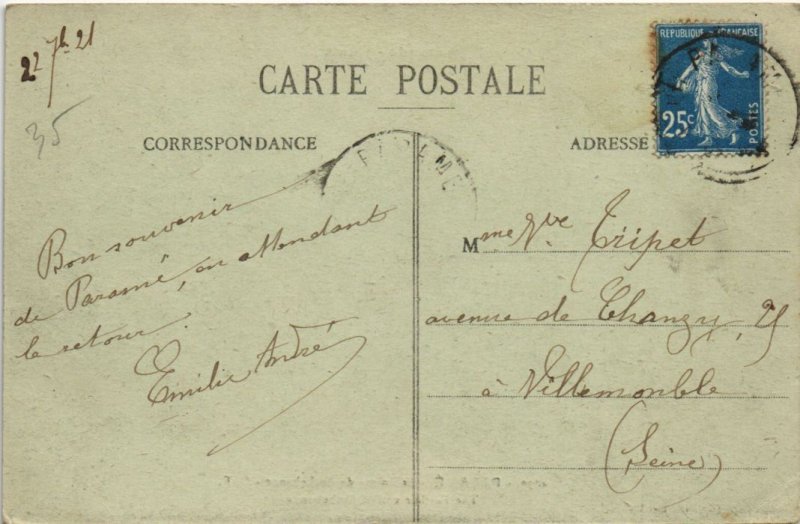 22 7b 21
35
CARTE POSTALE
CORRESPONDANCE
ADRESSE
REPUBLIQUE FRANÇAISE
25c
POSTES
PARAME
Bon souvenir
de Paramé, en attendant
le retour.
Emilie André
Mme Vve Tripet
avenue de Changy, 25
à Villemonble
(Seine)